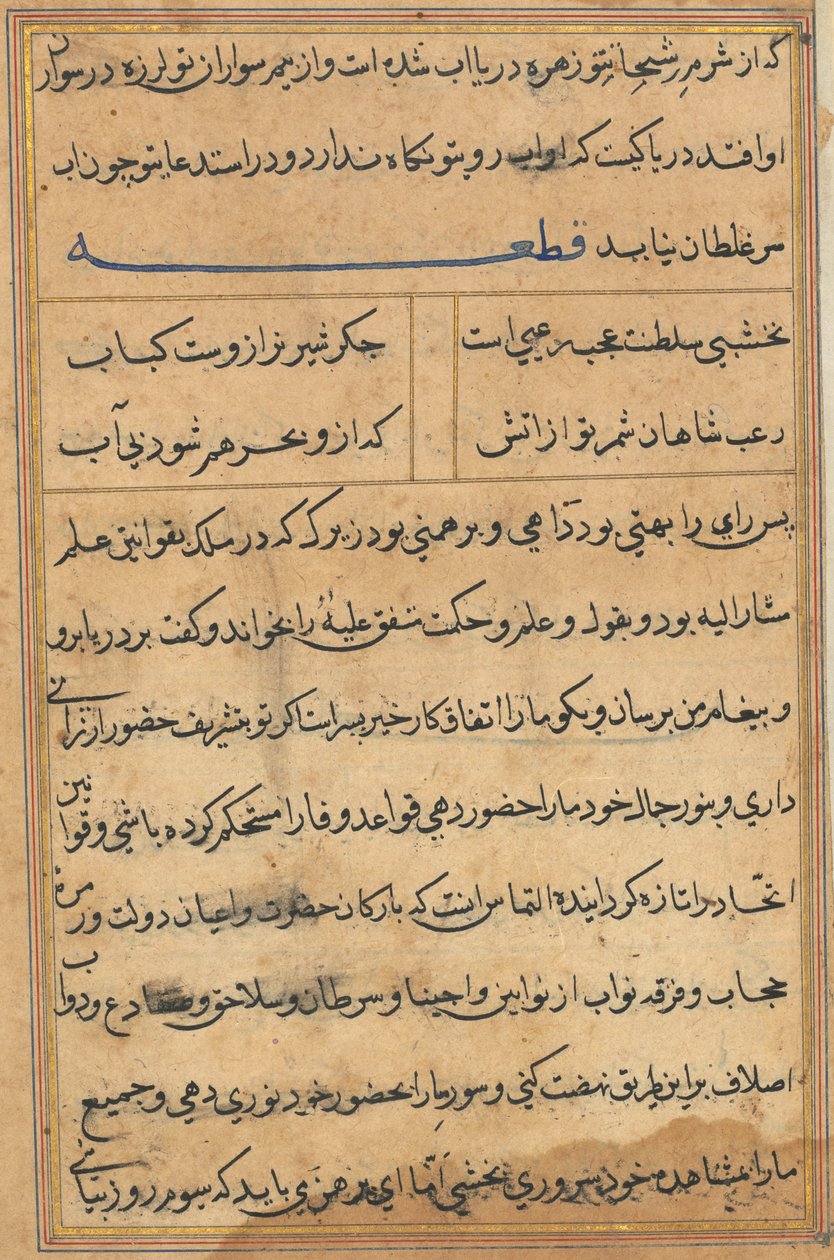 که از شرم رشحات تو زهره دریا اب شده است و از بیم سواران تو لرزه در سواران
او افتد دریا کیست که او اب روی تو نکاه ندارد و در استدعای تو چون اب
سر غلطان نیاید قطعه
نخشبی سلطنت عجب رعبی است
جکر شیر نر ازوست کباب
رعب شاهان شمر تو از اتش
که ازو بحر هم شود بی آب
پس رای را بهتی بود داهی و برهمنی بود زیرک که در ملک بقوانین علم
مشار الیه بود و بقول و علم و حکمت متفق علیه را بخواند و کفت بر دریا برو
و پیغام من برسان و بکو ما را اتفاق کار خیر پسر است اکر تو بتشریف حضور ارزانی
داری و بنور جمال خود ما را حضور دهی قواعد وفا را مستحکم کرده باشی و قوانین
اتحاد را تازه کردانیده التماس اینست که با ارکان حضرت و اعیان دولت و زمره
حجاب و فرقه نواب از نوابین و احینا و سرطان و سلاحق و ضفادع و دواب
اصلاف براین طریق نهضت کنی و سور ما را بحضور خود نوری دهی و جمیع
ما را بمشاهده خود سروری بخشی اما ای برهمن می باید که سوم روز بیائی